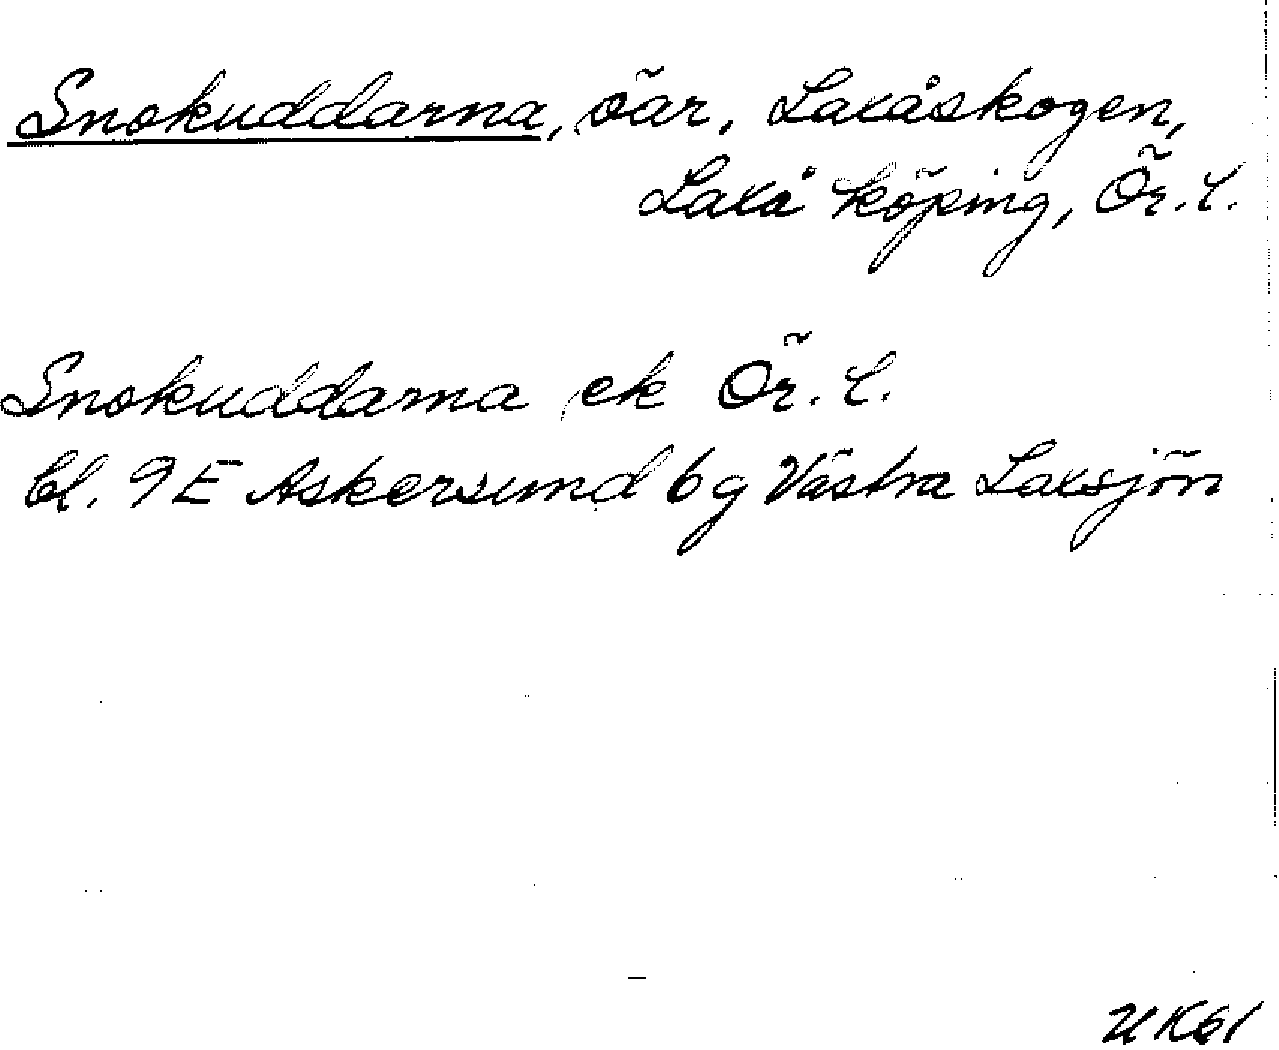 Snokuddarna, öar, Laxåskogen,
Laxå köping, Ör.l.
Snokuddarna ek Ör.l.
bl. 9E Askersund 6g Västra Laxsjön
UK61